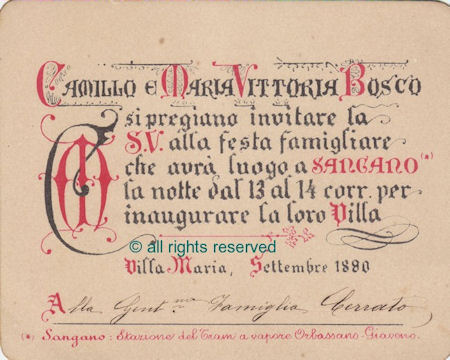 Camillo e Maria Vittoria Bosco
si pregiano invitare la
S.V. alla festa famigliare
che avrà luogo a SANGANO (*)
la notte dal 13 al 14 corr. per
inaugurare la loro Villa
© all rights reserved
Villa Maria, Settembre 1890
Alla Gent.ma Famiglia Cerrato
(*) Sangano: Stazione del Tram a vapore Orbassano-Giaveno.